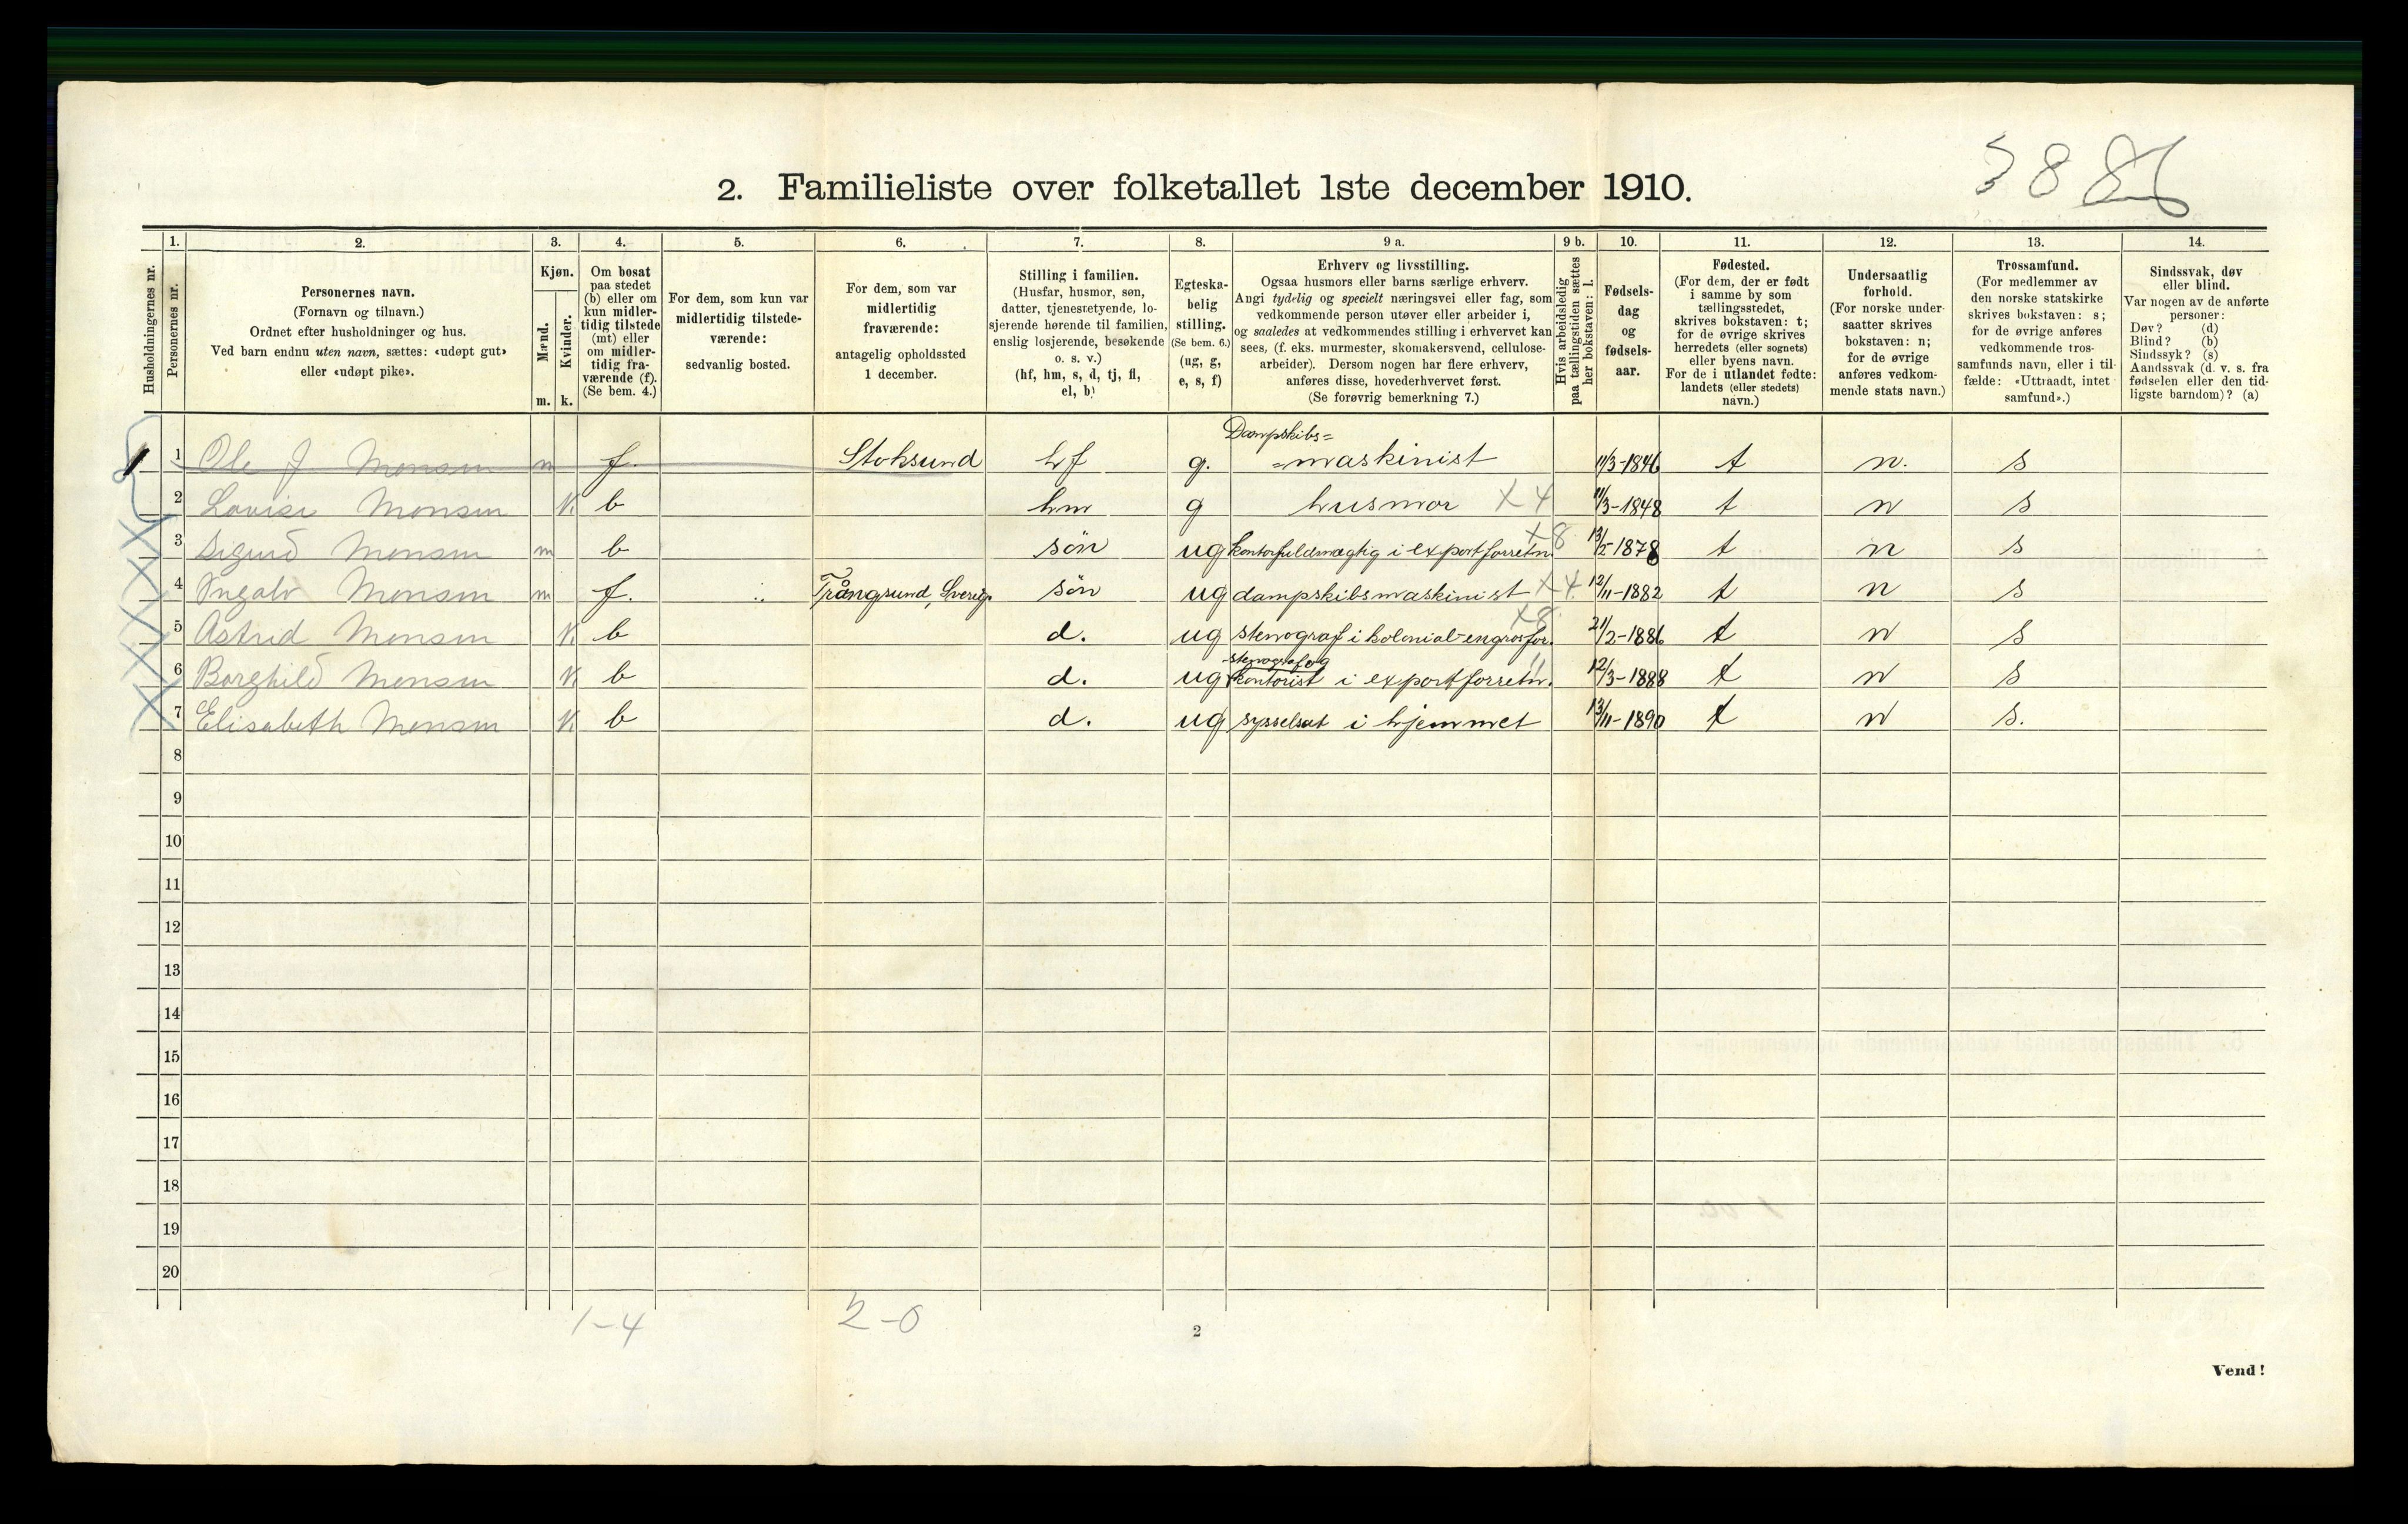 3886
2. Familieliste over folketallet 1ste december 1910.
Husholdningernes nr.
1. Personernes nr.
2. Personernes navn.
(Fornavn og tilnavn.)
Ordnet efter husholdninger og hus.
Ved barn endnu uten navn, sættes: «udøpt gut»
eller «udøpt pike».
3. Kjøn.
Mænd. m.
Kvinder. k.
4. Om bosat
paa stedet
(b) eller om
kun midler-
tidig tilstede
(mt) eller
om midler-
tidig fra-
værende (f).
(Se bem. 4.)
5. For dem, som kun var
midlertidig tilstede-
værende:
sedvanlig bosted.
6. For dem, som var
midlertidig
fraværende:
antagelig opholdssted
1 december.
7. Stilling i familien.
(Husfar, husmor, søn,
datter, tjenestetyende, lo-
sjerende hørende til familien,
enslig losjerende, besøkende
o. s. v.)
(hf, hm, s, d, tj, fl,
el, b)
8. Egteska-
belig
stilling.
(Se bem. 6.)
(ug, g,
e, s, f)
9 a. Erhverv og livsstilling.
Ogsaa husmors eller barns særlige erhverv.
Angi tydelig og specielt næringsvei eller fag, som
vedkommende person utøver eller arbeider i,
og saaledes at vedkommendes stilling i erhvervet kan
sees, (f. eks. murmester, skomakersvend, cellulose-
arbeider). Dersom nogen har flere erhverv,
anføres disse, hovederhvervet først.
(Se forøvrig bemerkning 7.)
9 b. Hvis arbeidsledig
paa tællingstiden sættes
her bokstaven: l.
10. Fødsels-
dag
og
fødsels-
aar.
11. Fødested.
(For dem, der er født
i samme by som
tællingsstedet,
skrives bokstaven: t;
for de øvrige skrives
herredets (eller sognets)
eller byens navn.
For de i utlandet fødte:
landets (eller stedets)
navn.)
12. Undersaatlig
forhold.
(For norske under-
saatter skrives
bokstaven: n;
for de øvrige
anføres vedkom-
mende stats navn.)
13. Trossamfund.
(For medlemmer av
den norske statskirke
skrives bokstaven: s;
for de øvrige anføres
vedkommende tros-
samfunds navn, eller i til-
fælde: «Uttraadt, intet
samfund».)
14. Sindssvak, døv
eller blind.
Var nogen av de anførte
personer:
Døv? (d)
Blind? (b)
Sindssyk? (s)
Aandssvak (d. v. s. fra
fødselen eller den tid-
ligste barndom)? (a)
1 1 Ole J Monsen m f. Stoksund hf g. Dampskibs=
=maskinist 11/3-1846 t n. s
2 Lovise Monsen k. b hm g husmor X4 11/3-1848 t n s
3 Sigurd Monsen m b sön ug kontorfuldmægtig i exportforretn. X8 13/2-1878 t n s
4 Ingolv Monsen m f. Trångsund, Sverig. sön ug dampskibsmaskinist X4 12/11-1882 t n s
5 Astrid Monsen k. b d. ug stenograf i kolonial-engrosfor. X8 21/2-1886 t n s
6 Borghild Monsen k. b d. ug stenograf og
kontorist i exportforretn. " 12/3-1888 t n s
7 Elisabeth Monsen k. b d. ug sysselsat i hjemmet 13/11-1890 t n s.
8
9
10
11
12
13
14
15
16
17
18
19
20
1-4 2-0
2
Vend!